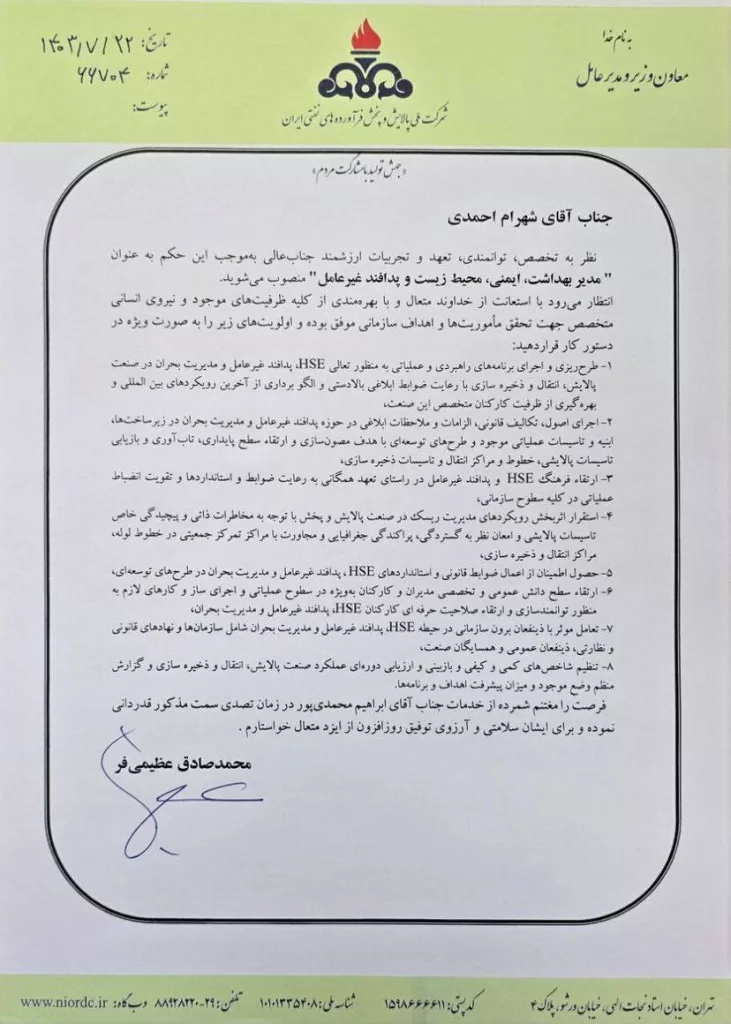 به نام خدا
معاون وزیر و مدیر عامل
شرکت ملی پالایش و پخش فرآورده های نفتی ایران
تاریخ: ۱۴۰۳/۷/۲۲
شماره: ۶۶۷۰۴
پیوست:
«جهش تولید با مشارکت مردم»
جناب آقای شهرام احمدی
نظر به تخصص، توانمندی، تعهد و تجربیات ارزشمند جناب‌عالی به‌موجب این حکم به عنوان
" مدیر بهداشت، ایمنی، محیط زیست و پدافند غیرعامل" منصوب می‌شوید.
انتظار می‌رود با استعانت از خداوند متعال و با بهره‌مندی از کلیه ظرفیت‌های موجود و نیروی انسانی
متخصص جهت تحقق مأموریت‌ها و اهداف سازمانی موفق بوده و اولویت‌های زیر را به صورت ویژه در
دستور کار قراردهید:
۱- طرح‌ریزی و اجرای برنامه‌های راهبردی و عملیاتی به منظور تعالی HSE، پدافند غیرعامل و مدیریت بحران در صنعت
پالایش، انتقال و ذخیره سازی با رعایت ضوابط ابلاغی بالادستی و الگو برداری از آخرین رویکردهای بین المللی و
بهره‌گیری از ظرفیت کارکنان متخصص این صنعت،
۲- اجرای اصول، تکالیف قانونی، الزامات و ملاحظات ابلاغی در حوزه پدافند غیرعامل و مدیریت بحران در زیرساخت‌ها،
ابنیه و تاسیسات عملیاتی موجود و طرح‌های توسعه‌ای با هدف مصون‌سازی و ارتقاء سطح پایداری، تاب‌آوری و بازیابی
تاسیسات پالایشی، خطوط و مراکز انتقال و تاسیسات ذخیره سازی،
۳- ارتقاء فرهنگ HSE و پدافند غیرعامل در راستای تعهد همگانی به رعایت ضوابط و استانداردها و تقویت انضباط
عملیاتی در کلیه سطوح سازمانی،
۴- استقرار اثربخش رویکردهای مدیریت ریسک در صنعت پالایش و پخش با توجه به مخاطرات ذاتی و پیچیدگی خاص
تاسیسات پالایشی و امعان نظر به گستردگی، پراکندگی جغرافیایی و مجاورت با مراکز تمرکز جمعیتی در خطوط لوله،
مراکز انتقال و ذخیره سازی،
۵- حصول اطمینان از اعمال ضوابط قانونی و استانداردهای HSE، پدافند غیرعامل و مدیریت بحران در طرح‌های توسعه‌ای،
۶- ارتقاء سطح دانش عمومی و تخصصی مدیران و کارکنان به‌ویژه در سطوح عملیاتی و اجرای ساز و کارهای لازم به
منظور توانمندسازی و ارتقاء صلاحیت حرفه ای کارکنان HSE، پدافند غیرعامل و مدیریت بحران،
۷- تعامل موثر با ذینفعان برون سازمانی در حیطه HSE، پدافند غیرعامل و مدیریت بحران شامل سازمان‌ها و نهادهای قانونی
و نظارتی، ذینفعان عمومی و همسایگان صنعت،
۸- تنظیم شاخص‌های کمی و کیفی و بازبینی و ارزیابی دوره‌ای عملکرد صنعت پالایش، انتقال و ذخیره سازی و گزارش
منظم وضع موجود و میزان پیشرفت اهداف و برنامه‌ها.
فرصت را مغتنم شمرده از خدمات جناب آقای ابراهیم محمدی‌پور در زمان تصدی سمت مذکور قدردانی
نموده و برای ایشان سلامتی و آرزوی توفیق روزافزون از ایزد متعال خواستارم .
محمدصادق عظیمی‌فر
تهران، خیابان استاد نجات الهی، خیابان ورشو، پلاک ۴ کد پستی: ۱۵۹۸۶۶۶۶۱۱ شناسه ملی: ۱۰۱۰۱۳۳۵۴۰۸ تلفن: ۲۹-۸۸۹۲۸۲۲۰ وب گاه: www.niordc.ir